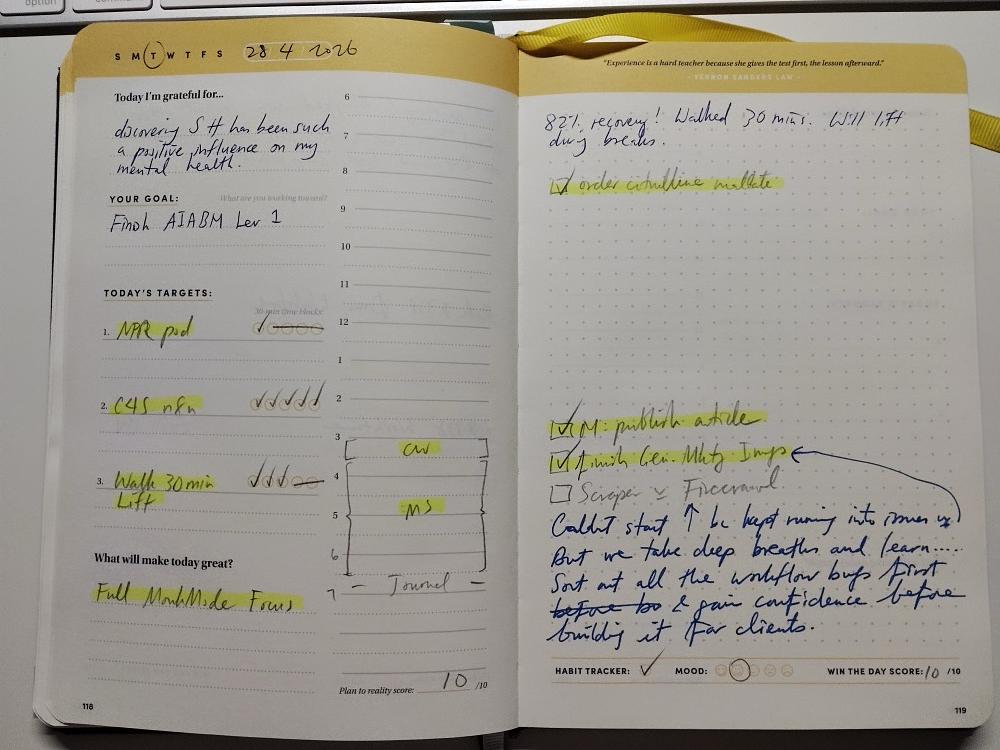 option
S M T W T F S 28 4 2026
Today I'm grateful for...
discovering S H has been such
a positive influence on my
mental health.
YOUR GOAL: What are you working toward?
Finish AIABM Lev 1
TODAY'S TARGETS:
30-min time blocks:
1. NPR pod
2. C45 n8n
3. Walk 30 min
Lift
What will make today great?
Full MonkMode Focus
118
6
7
8
9
10
11
12
1
2
3
CW
4
MS
5
6
- Journal -
7
Plan to reality score: 10 /10
"Experience is a hard teacher because she gives the test first, the lesson afterward."
- VERNON SANDERS LAW -
82% recovery! Walked 30 mins. Will lift
during breaks.
order citrulline mallate
M: publish article
finish Gen. Mktg Imgs
Scraper Firecrawl
Couldn't start ↑ bc kept running into issues
But we take deep breaths and learn.....
Sort out all the workflow bugs first
before bo & gain confidence before
building it for clients.
HABIT TRACKER: ✓ MOOD: WIN THE DAY SCORE: 10 /10
119